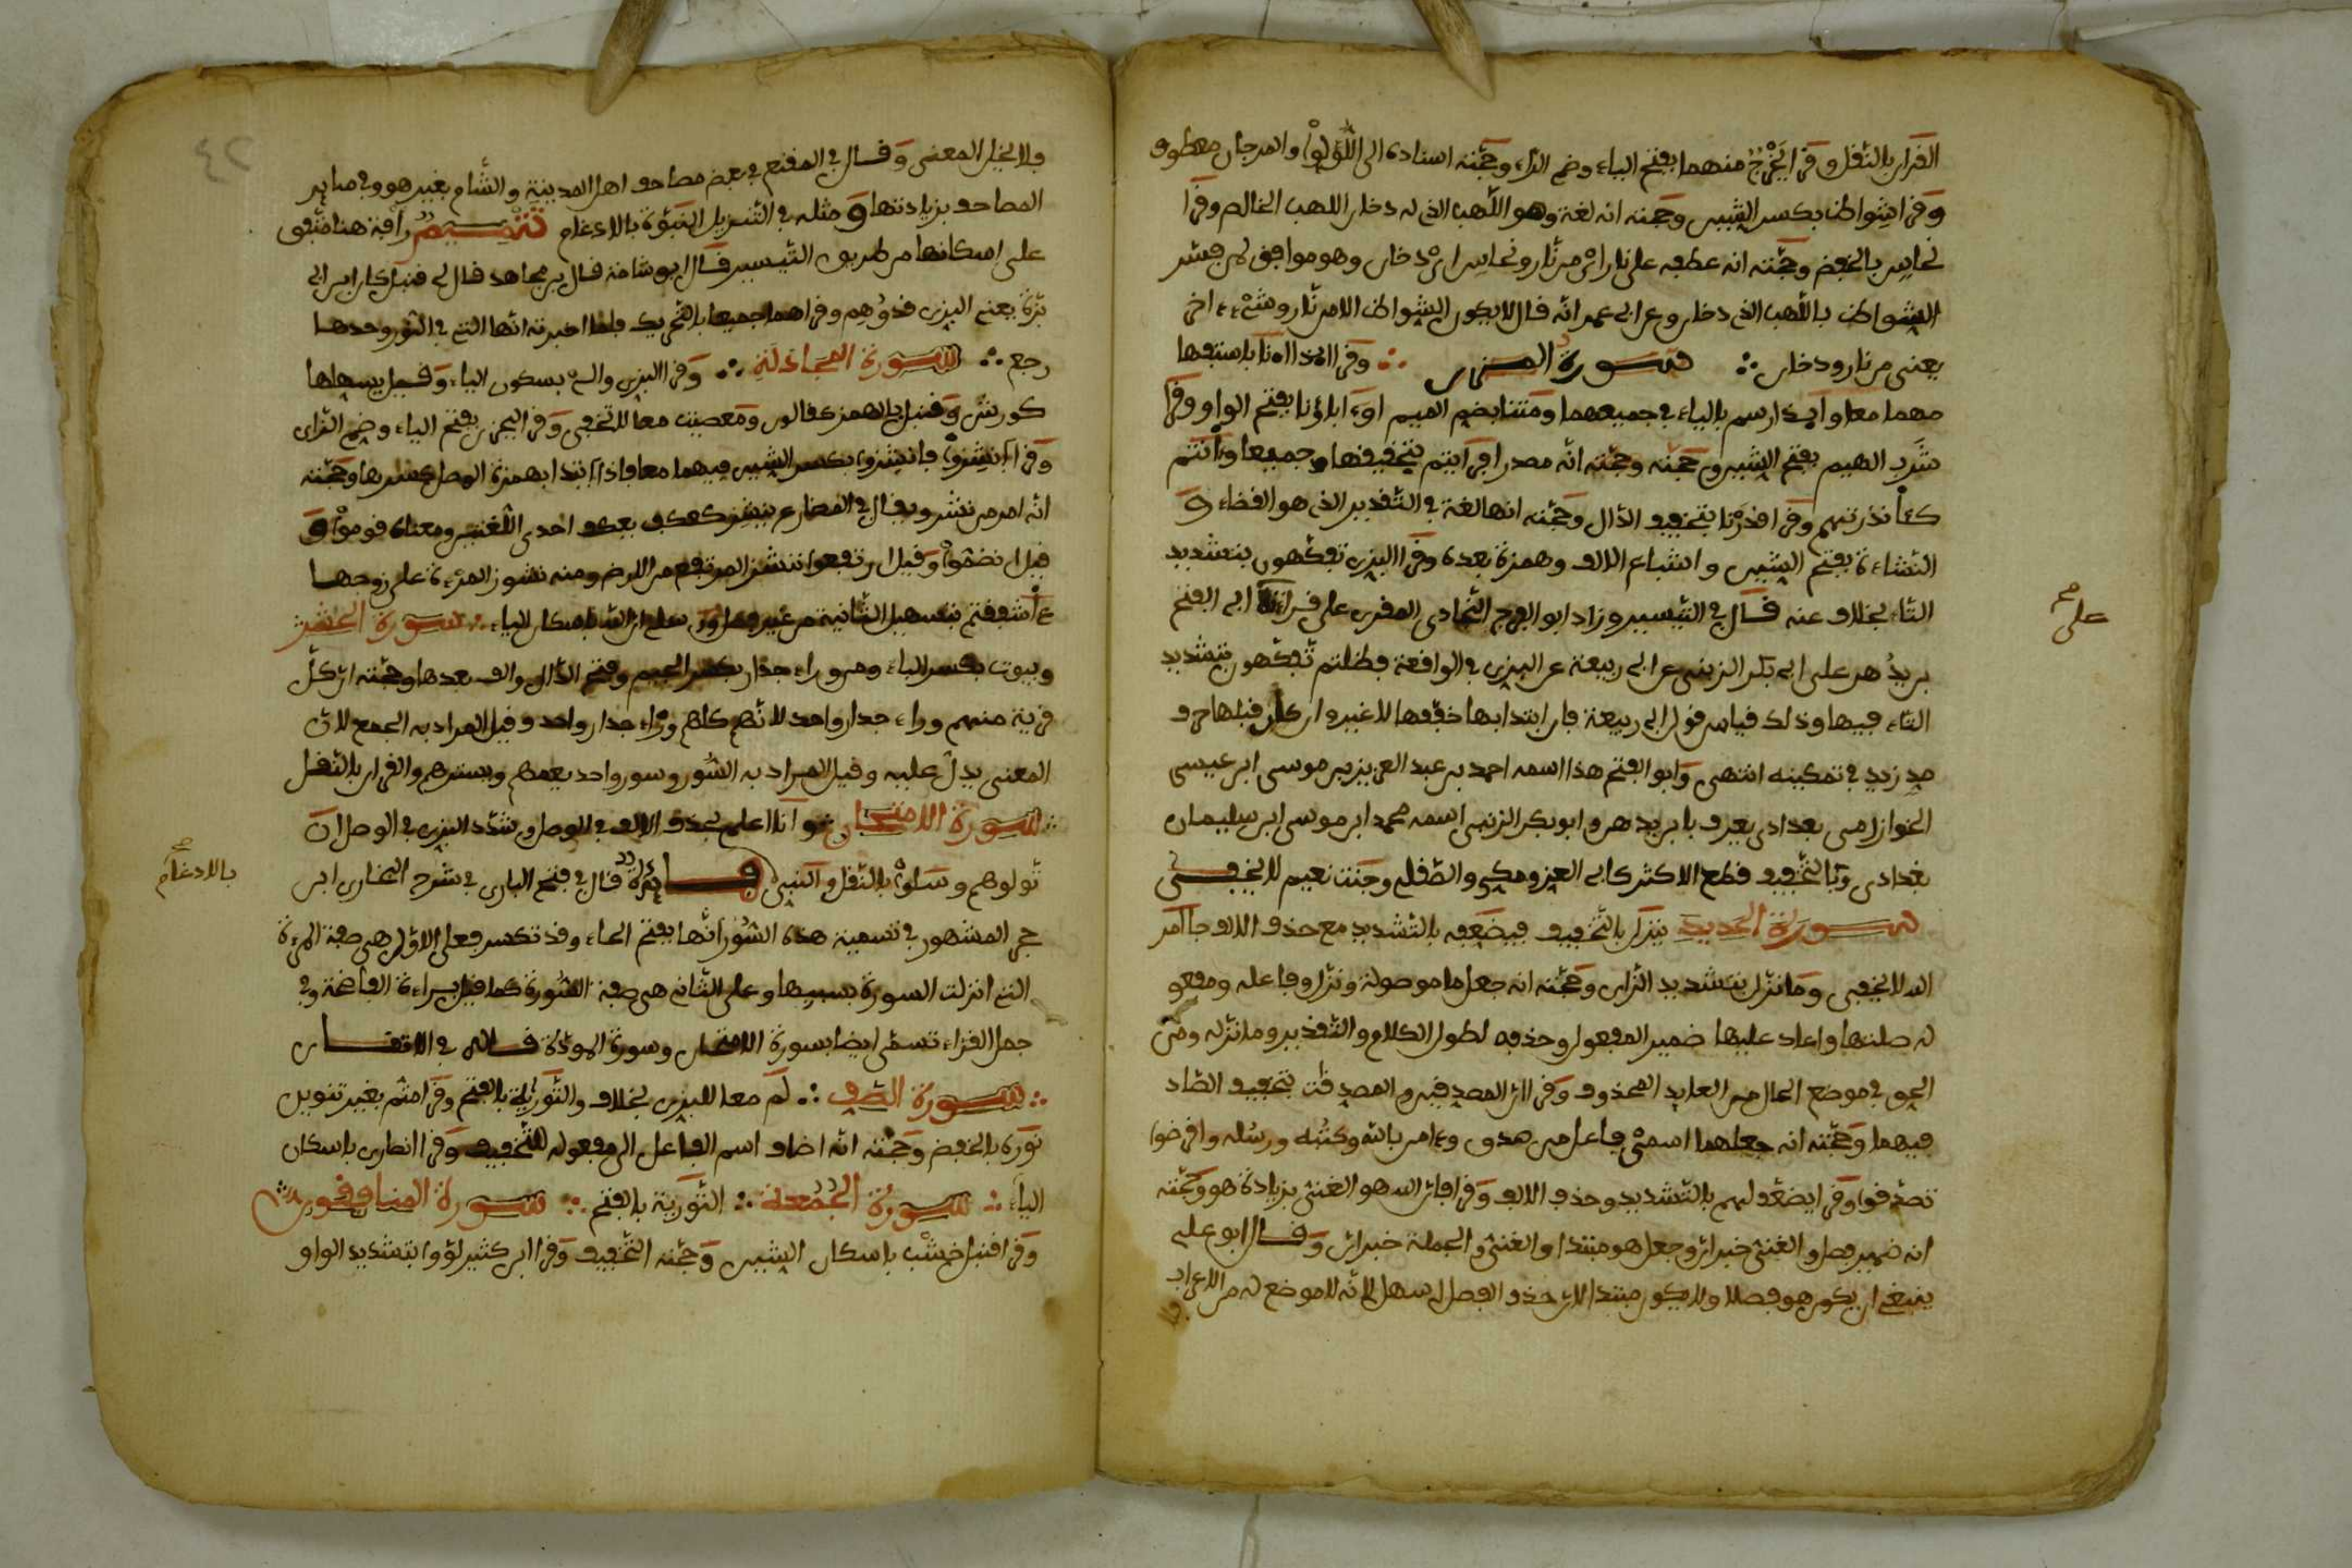 القران بالنقل وقرا يَخْرُجُ منهما بفتح الياء وضم الراء وحجّته اسناده الى اللّؤلؤا والمرجان معطوف
وقرا شِواظ بكسر الشين وحجته انه لغة وهو اللّهب الذي له دخان اللهب الخالص وقرا
نحاسِ بالخفض وحجّته انه عطفه على نار اي من نّار ونحاس اي دخان وهو موافق لمن فسّر
الشواظ باللّهب الذي دخان وعن ابي عمر انّه قال لا يكون الشواظ الا من نّار وشيْء اخر
يعني من نار ودخان ∴ سورة المزن ∴ وقرا ائذا اءنّا باستفها
مهما معا و ايذا رسم بالياء في جميعهما ومُتنا بضم الميم اوَءاباؤنا بفتح الواو وقرا
شَرب الهيم بفتح الشين وحجّته انّه مصدر افرايتم بتخفيفها جميعا وءآنتم
كءآنذرتهم وقرا قدرْنا بتخفيف الدّال وحجّته انها لغة في التّقدير الذي هو القضاء و
النّشاءة بفتح الشين واشباع الالف وهمزة بعده وقرا البزي تفكّهون بتشديد
التاء بخلاف عنه قال في التيسير وزاد ابو الفرج النّجادي المقري على قراءته ابي الفتح
على صح
بريدُهن على ابي بكر الزينبي عن ابي ربيعة عن البزي في الواقعة فظلتم تّفكّهون بتشديد
التاء فيها وذلك قياس قول ابي ربيعة فان ابتدا بها خفّفها لا غير وان كان قبلها حرف
مد زيد في تمكينه انتهى وابو الفتح هذا اسمه احمد بن عبد العزيز بن موسى ابن عيسى
الخوارزمي بغدادي يعرف بابن بدهن وابو بكر الزينبي اسمه محمد ابن موسى ابن سليمان
بغدادي وبالتّخفيف قطع الاكثر كابي العز ومكي والصّقلي وجنّت نعيم لا يخفى
سورة الحديد ينزل بالتّخفيف فيضعّفه بالتّشديد مع حذف الالف جآ امر
الله لا يخفى وما نزّل بتشديد الزاى وحجّته انه جعل ما موصولة ونزّل وفاعله ومفعو
له صلتها واعاد عليها ضمير المفعول وحذفه لطول الكلام والتّقدير وما نزّله ومن
الحق في موضع الحال من العايد المحذوف وقرا ان المصدقين والمصدقت بتخفيف الصّاد
فيهما وحجّته انه جعلهما اسمي فاعل من صدق وءامن بالله وكتبه ورسُله واقرضوا
تصدّقوا وقرا يضعّف لهم بالتّشديد وحذف الالف وقرا فان الله هو الغني بزيادة هو وحجّته
انه ضمير فصل والغني خبر ان وجعل هو مبتدا والغني والجملة خبر ان وقال ابو علي
ينبغي ان يكون هو فصلا ولا يكون مبتدا لان حذف الفصل اسهل لانّه لا موضع له من الاعراب
٤٢
فلا يخل المعنى وقال في المقنع في بعض مصاحف اهل المدينة والشّام بغير هو وفي ساير
المصاحف بزيادتها و مثله في التّنزيل النبوّة بالادغام تتميم رافة هنا متّفق
على اسكانها من طريق التّيسير قال ابو شامة قال بن مجاهد قال لي قنبل كان ابن ابي
بزّة يعني البزي قد وُهِم وقراهما جميعا بالتّحريك فلما اخبرته انّها التي في النّور وحدها
رجع ∴ سورة المجادلة ∴ وقرا البزي والئ بسكون الياء وقيل يسهلها
كورش وقنبل بالهمز كقالون ومعصيت معا لا تخفى وقرا ليحزن بفتح الياء وضم الزاى
وقرا انشِزوا فانشِزوا بكسر الشين فيهما معا فاذا ابتدا بهمزة الوصل كسرها وحجّته
انّه امر من نشز ويقال في المضارع ينشز كعكف يعكف احدى اللّغتين ومعناه قوموا و
قيل انضمّوا وقيل ارتفعوا نشز المرتفع من الارض ومنه نشوز المرءة على زوجها
ءآشفقتم بتسهيل الثّانية من غير ورسلي ان الله باسكان الياء ∴ سورة الحشر
وبيوت بكسر الباء ومن وراء جدار بكسر الجيم وفتح الدّال والف بعدها وحجّته ان كلّ
فرية منهم وراء جدار واحد لا نّهم كلهم وراء جدار واحد وقيل المراد به الجمع لان
المعنى يدل عليه وقيل المراد به السّور وسور واحد يعمهم ويسترهم والقران بالنّقل
∴ سورة الامتحان نحو انا اعلم بحذف الالف في الوصل وشدّد البزي في الوصل ان
تّولوهم وسَلوا بالنّقل والنبي بالادغام صح فايدة قال في فتح الباري في شرح البخاري ابن
حجر المشهور في تسمية هذه السّورة انّها بفتح الحاء وقد تكسر فعلى الاوّل هي صفة المرءة
التي انزلت السورة بسببها وعلى الثّاني هي صفة السّورة كما قيل براءة الفاضحة وفي
جمال القراء تسمّى ايضا سورة الامتحان وسورة المودّة قاله في الاتقان
∴ سورة الصّف ∴ لم معا للبزي بخلاف والتّوريٰة بالفتح وقرا متم بغير تنوين
نوره بالخفض وحجّته انّه اضاف اسم الفاعل الى مفعوله للتّخفيف وقرا انصاري باسكان
الياء ∴ سورة الجُمُعة ∴ التّورية بالفتح ∴ سورة المنافقون ∴
وقرا قنبل خشْب باسكان الشين وحجّته التّخفيف وقرا ابن كثير لوّوا بتشديد الواو